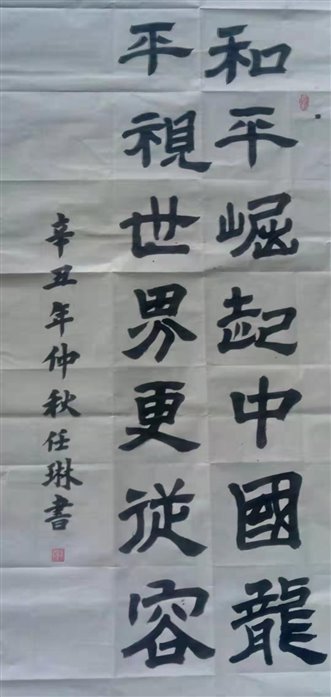 和平崛起中國龍
平視世界更従容
辛丑年仲秋任琳書